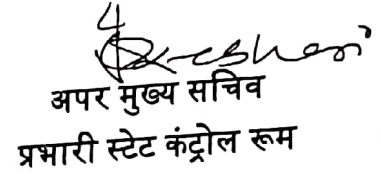 अपर मुख्य सचिव
प्रभारी स्टेट कंट्रोल रूम